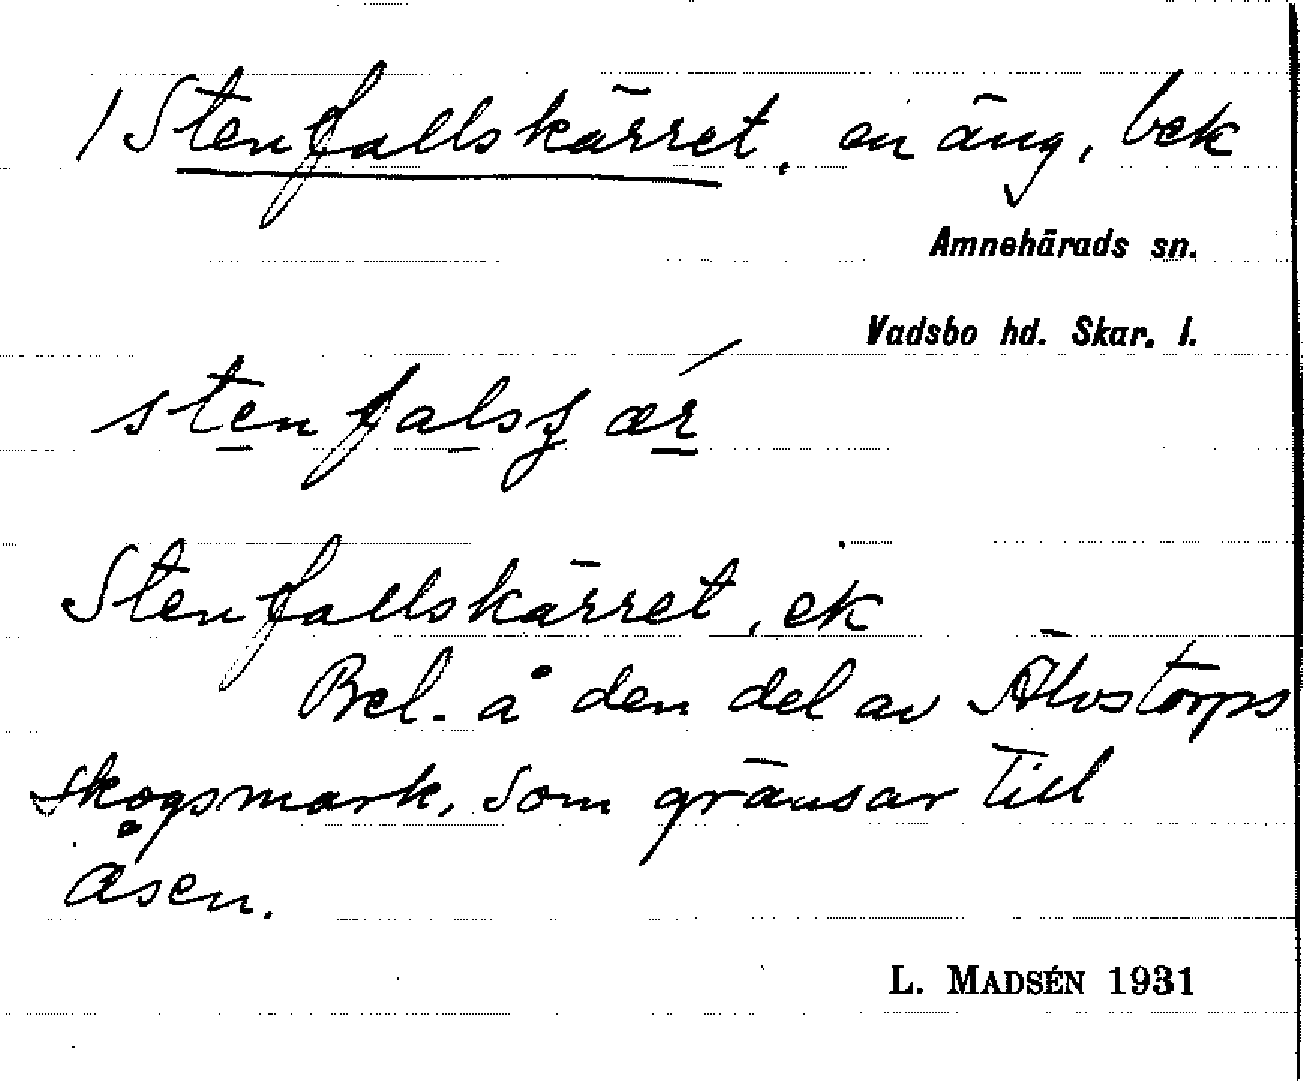 1 Stenfallskärret, en äng, bek
Amnehärads sn.
Vadsbo hd. Skar. l.
Stenfallskärret, ek
Bel. å den del av Älvstorps
skogsmark, som gränsar till
åsen.
L. MADSÉN 1931